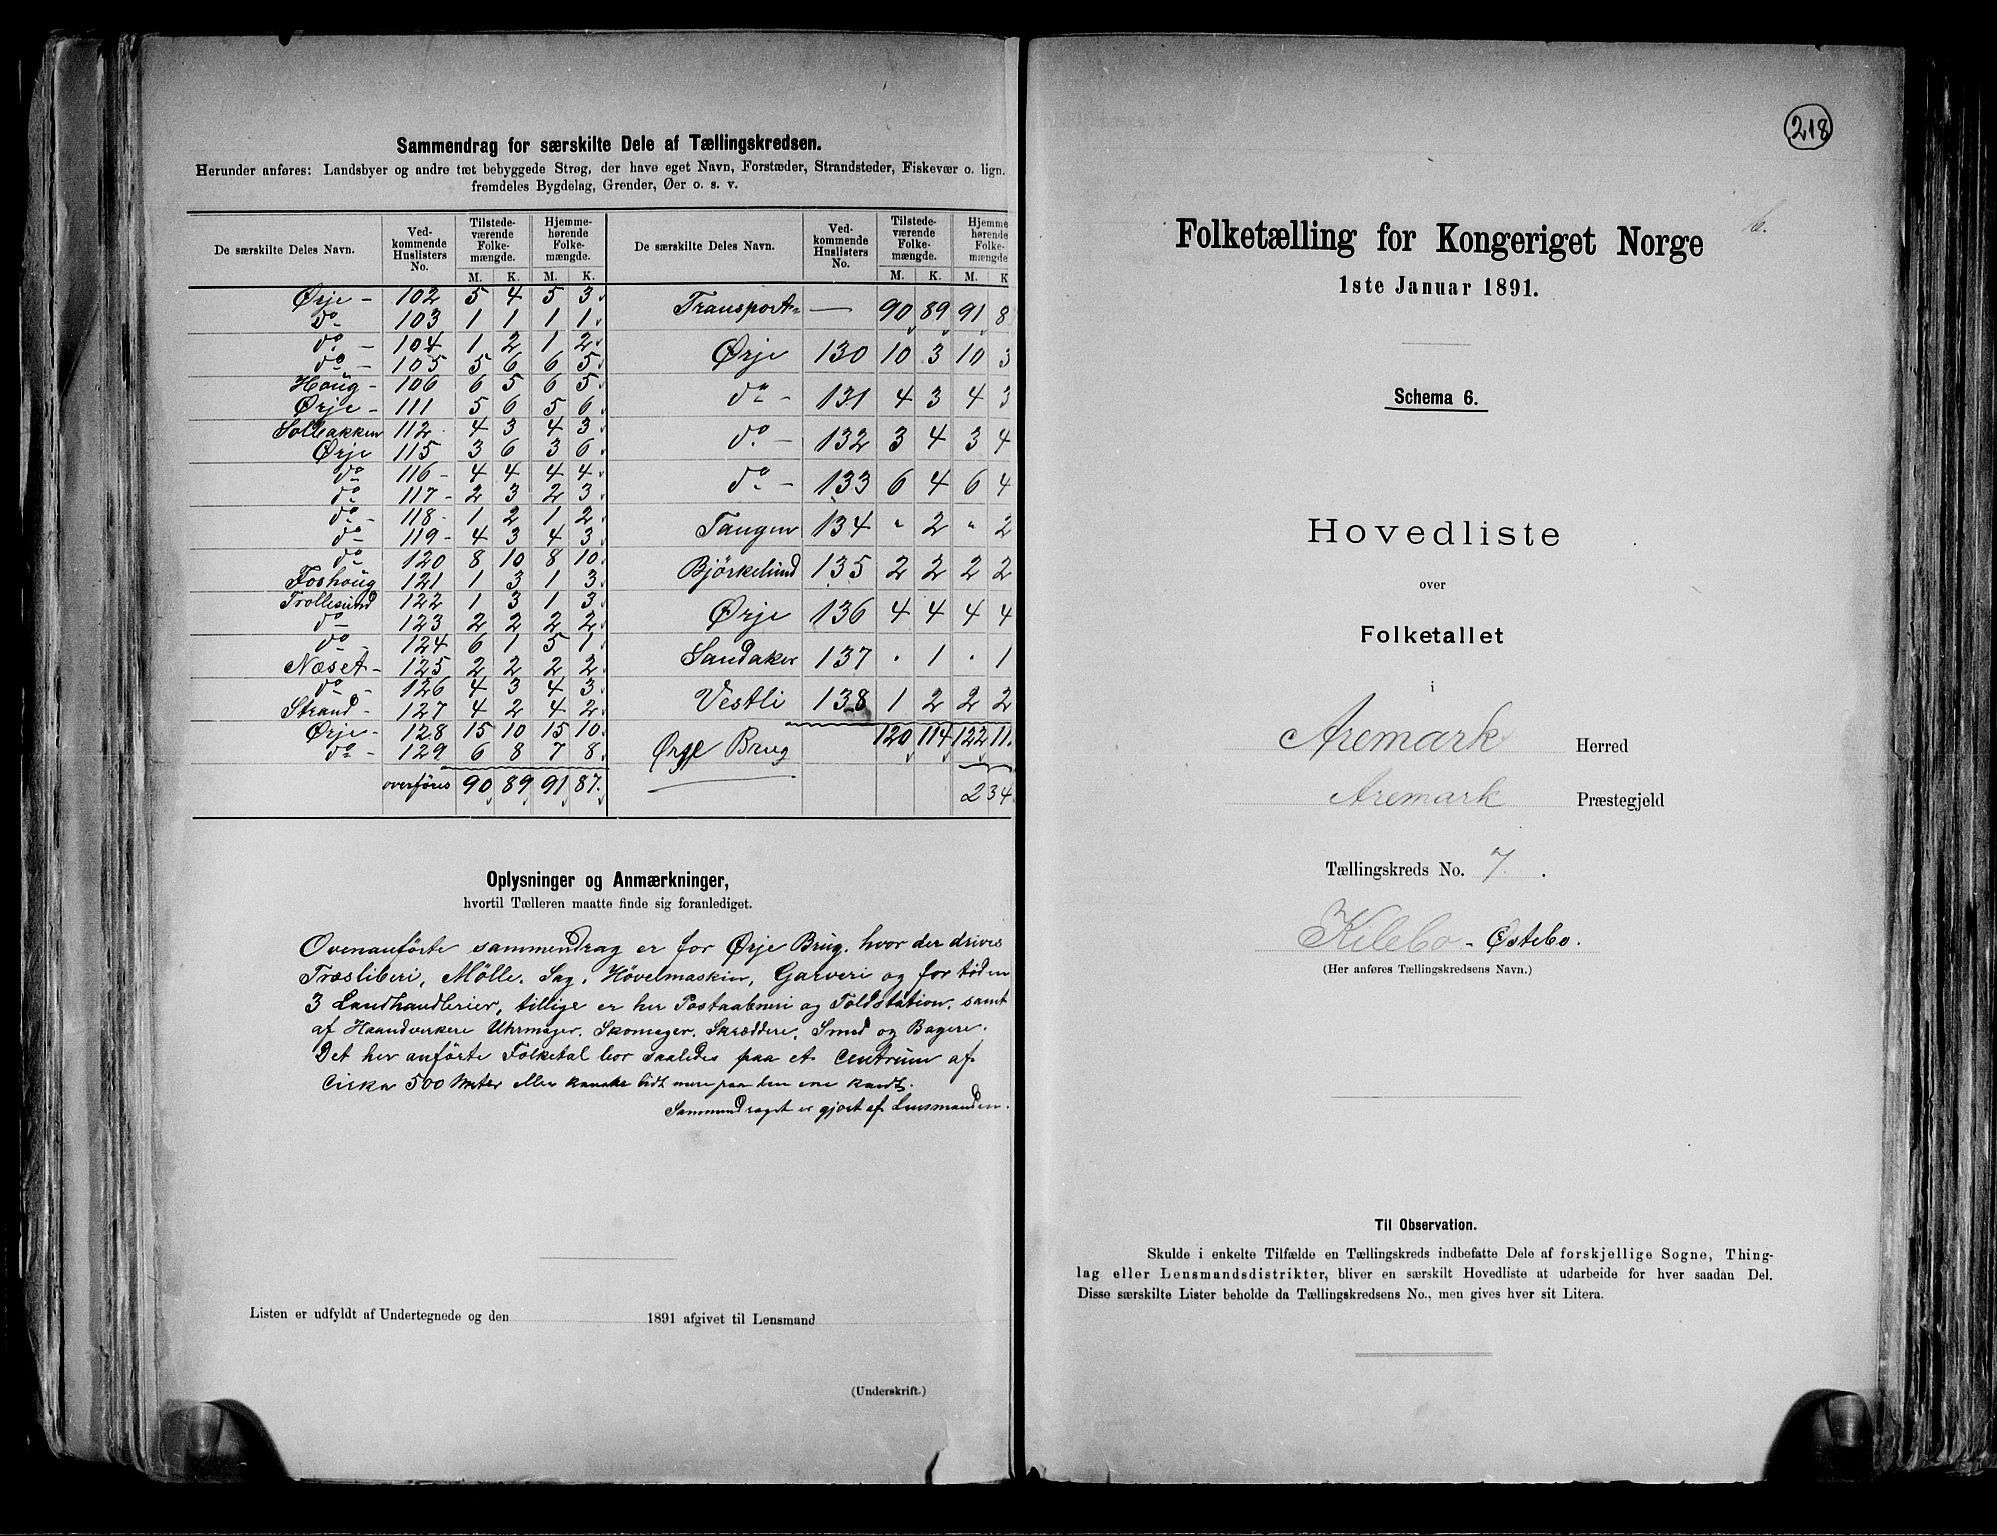 Sammendrag for særskilte Dele af Tællingskredsen.
Herunder anføres: Landsbyer og andre tæt bebyggede Strøg, der have eget Navn, Forstæder, Strandsteder, Fiskevær o. lign.
fremdeles Bygdelag, Grender, Øer o. s. v.
De særskilte Deles Navn. Ved-kommende Huslisters No. Tilstede-værende Folke-mængde. M. K. Hjemme-hørende Folke-mængde. M. K.
Ørje - 102 5 4 5 3
do 103 1 1 1 1
do - 104 1 2 1 2
do - 105 5 6 6 5
Houg - 106 6 5 6 5
Ørje - 111 5 6 5 6
Solbakken 112 4 3 4 3
Ørje 115 3 6 3 6
do 116 - 4 4 4 4
do 117 - 2 3 2 3
do - 118 - 1 2 1 2
do 119 - 4 3 4 3
do 120 8 10 8 10
Foshoug 121 1 3 1 3
Trollesund 122 1 3 1 3
do 123 2 2 2 2
do - 124 6 1 5 1
Næset - 125 2 2 2 2
do - 126 4 3 4 3
Strand - 127 4 2 4 2
Ørje - 128 15 10 15 10
do - 129 6 8 7 8
overføres 90 89 91 87
De særskilte Deles Navn. Ved-kommende Huslisters No. Tilstede-værende Folke-mængde. M. K. Hjemme hørende Folke-mængde M. K
Transport - 90 89 91 8
Ørje 130 10 3 10 3
do - 131 4 3 4 3
do - 132 3 4 3 4
do - 133 6 4 6 4
Tangen 134 " 2 " 2
Bjørkelund 135 2 2 2 2
Ørje 136 4 4 4 4
Sandaker 137 . 1 . 1
Vestli 138 1 2 2 2
Ørje Brug 120 114 122 11
234
Oplysninger og Anmærkninger,
hvortil Tælleren maatte finde sig foranlediget.
Ovenanførte sammendrag er for Ørje Brug, hvor der drives
Træsliberi, Mølle, Sag, Høvelmaskin, Garveri og for tiden
3 Landhandlerier, tillige er her Postaabneri og Toldstation, samt
af Haandverkere Uhrmager, Skomager, Skræddere, Smed og Bagere.
Det her anførte Folketal bor saaledes paa et Centrum af
Cirka 500 Meter eller kanske lidt mere paa den ene kandt.
Sammendraget er gjort af Lensmanden.
Listen er udfyldt af Undertegnede og den 1891 afgivet til Lensmand
(Underskrift.)
218
6.
Folketælling for Kongeriget Norge
1ste Januar 1891.
Schema 6.
Hovedliste
over
Folketallet
i
Aremark Herred
Aremark Præstegjeld
Tællingskreds No. 7.
Kilebo - Østebo.
(Her anføres Tællingskredsens Navn.)
Til Observation.
Skulde i enkelte Tilfælde en Tællingskreds indbefatte Dele af forskjellige Sogne, Thing-
lag eller Lensmandsdistrikter, bliver en særskilt Hovedliste at udarbeide for hver saadan Del.
Disse særskilte Lister beholde da Tællingskredsens No., men gives hver sit Litera.